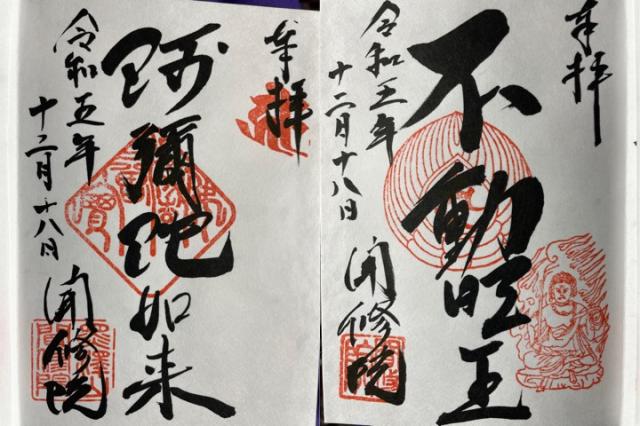 奉拝
不動明王
令和五年
十二月十八日
聞修院
奉拝
阿彌陀如来
令和五年
十二月十八日
聞修院